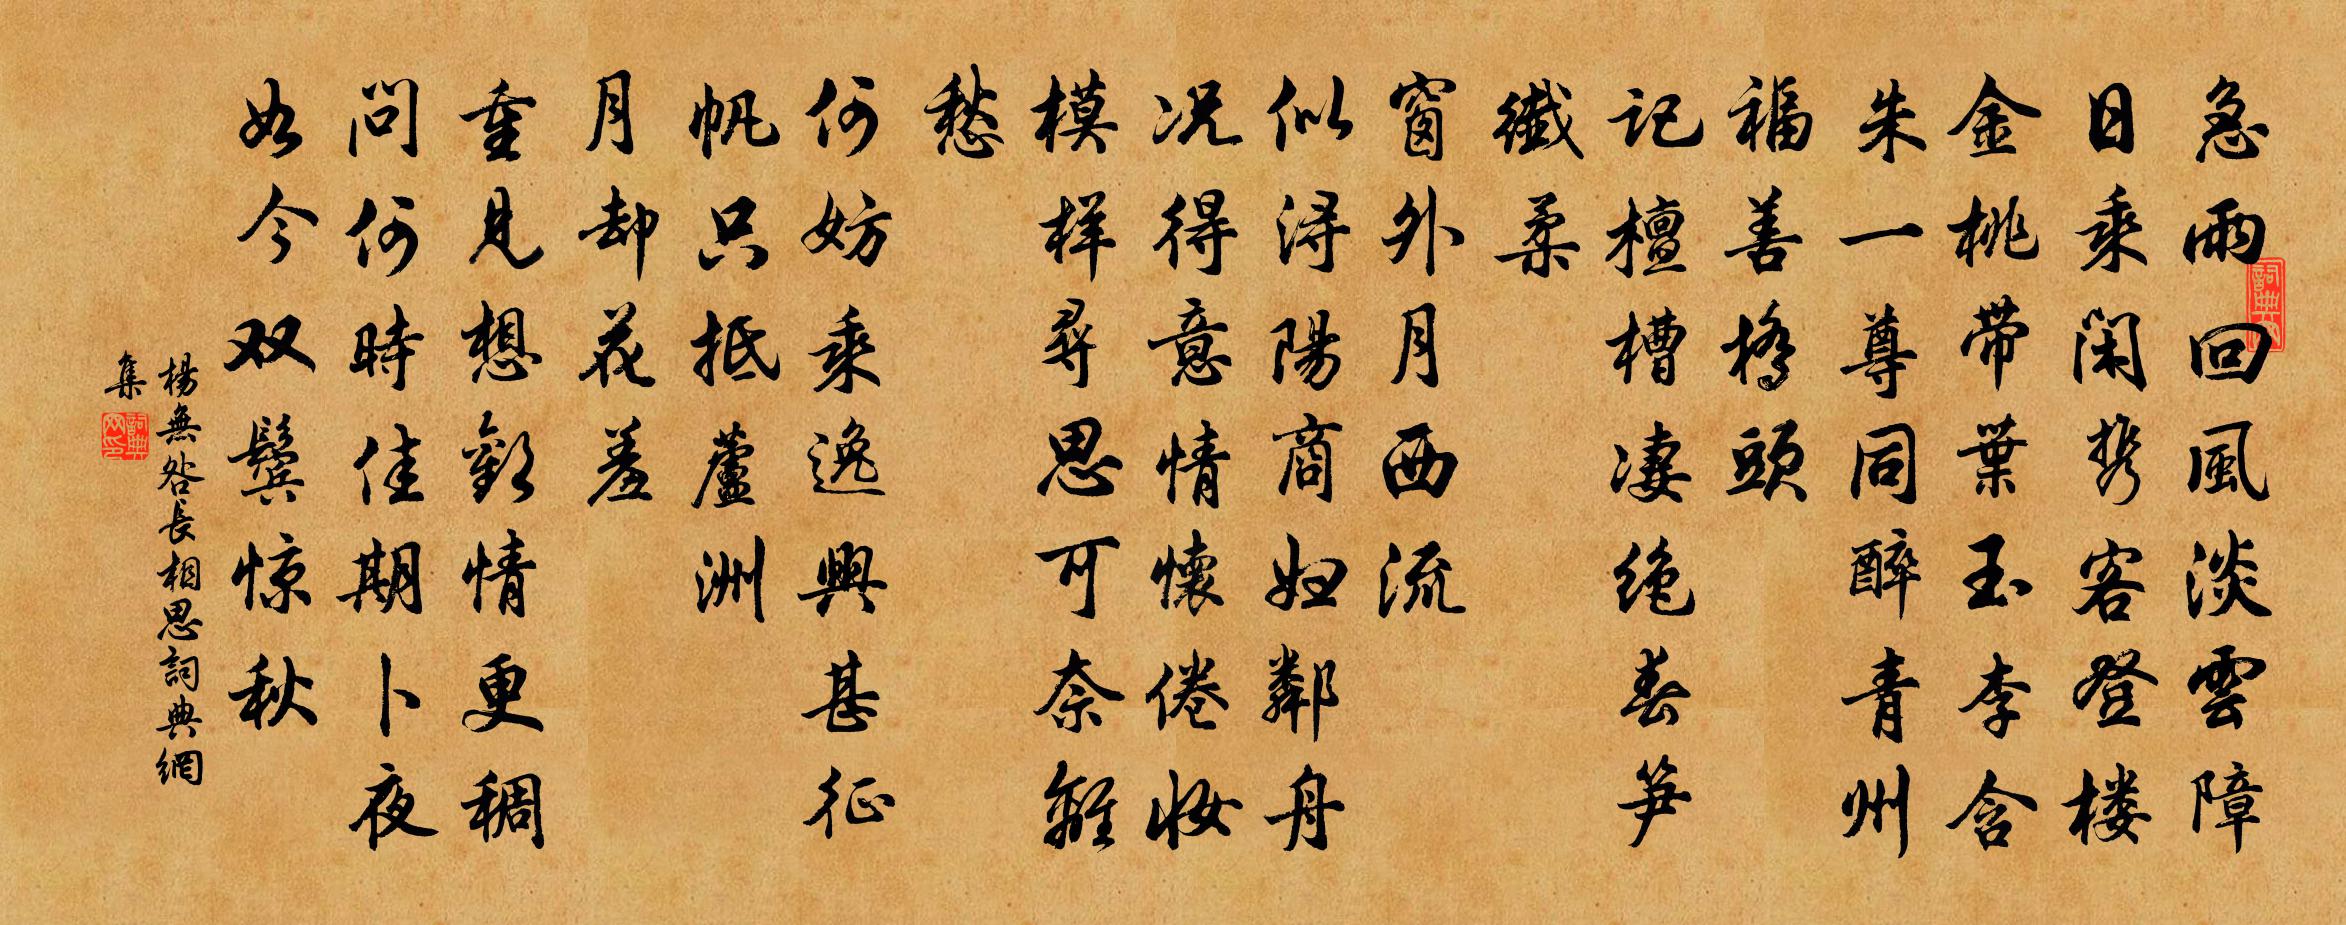 急雨回風淡雲障
日乘闲携客登楼
金桃带葉玉李含
朱一尊同醉青州
福善橋頭
記檀槽凄绝春笋
纖柔
窗外月西流
似浔陽商妇鄰舟
况得意情懷倦妆
模样尋思可奈離
愁
何妨乘逸興甚征
帆只抵蘆洲
月却花羞
重見想歡情更稠
問何時佳期卜夜
如今双鬓惊秋
楊無咎長相思詞典網
集